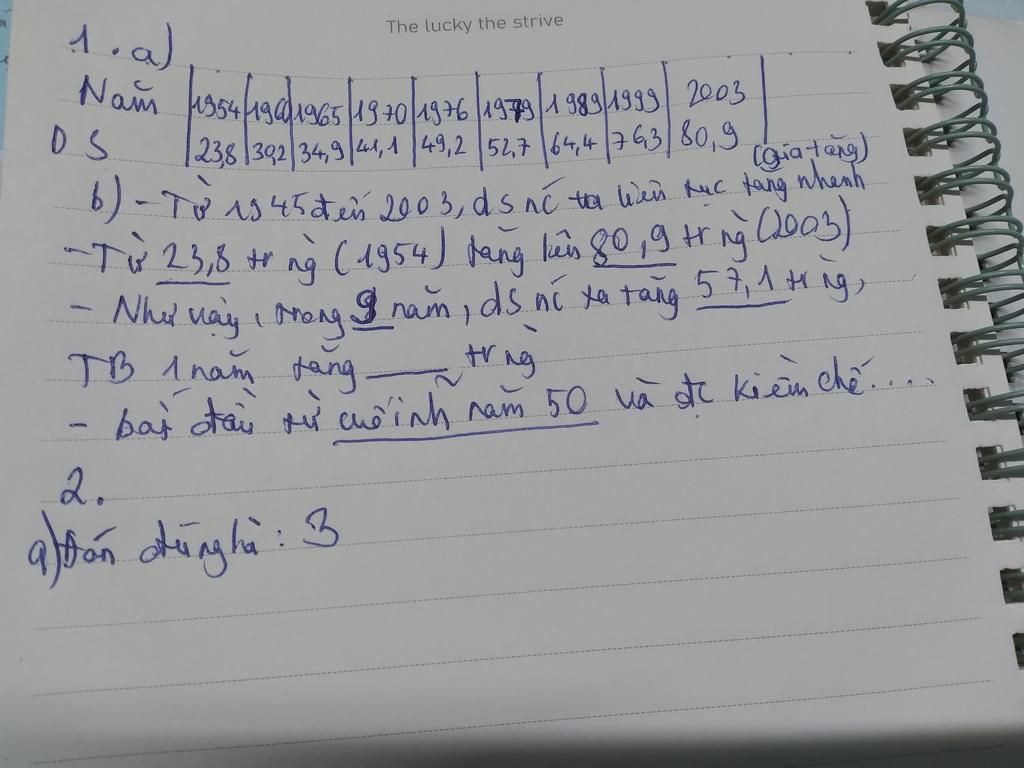 The lucky the strive
1. a)
Năm | 1954 | 1960 | 1965 | 1970 | 1976 | 1979 | 1989 | 1999 | 2003 |
DS | 23,8 | 30,2 | 34,9 | 41,1 | 49,2 | 52,7 | 64,4 | 76,3 | 80,9 |
(gia tăng)
b) - Từ 1945 đến 2003, ds nc ta liên tục tăng nhanh
- Từ 23,8 tr ng (1954) tăng lên 80,9 tr ng (2003)
- Như vậy, trong 9 năm, ds nc ta tăng 57,1 tr ng,
TB 1 năm tăng ____ tr ng
- bắt đầu từ cuối nh năm 50 và đc kiềm chế....
2.
a) Đán đúng là: 3